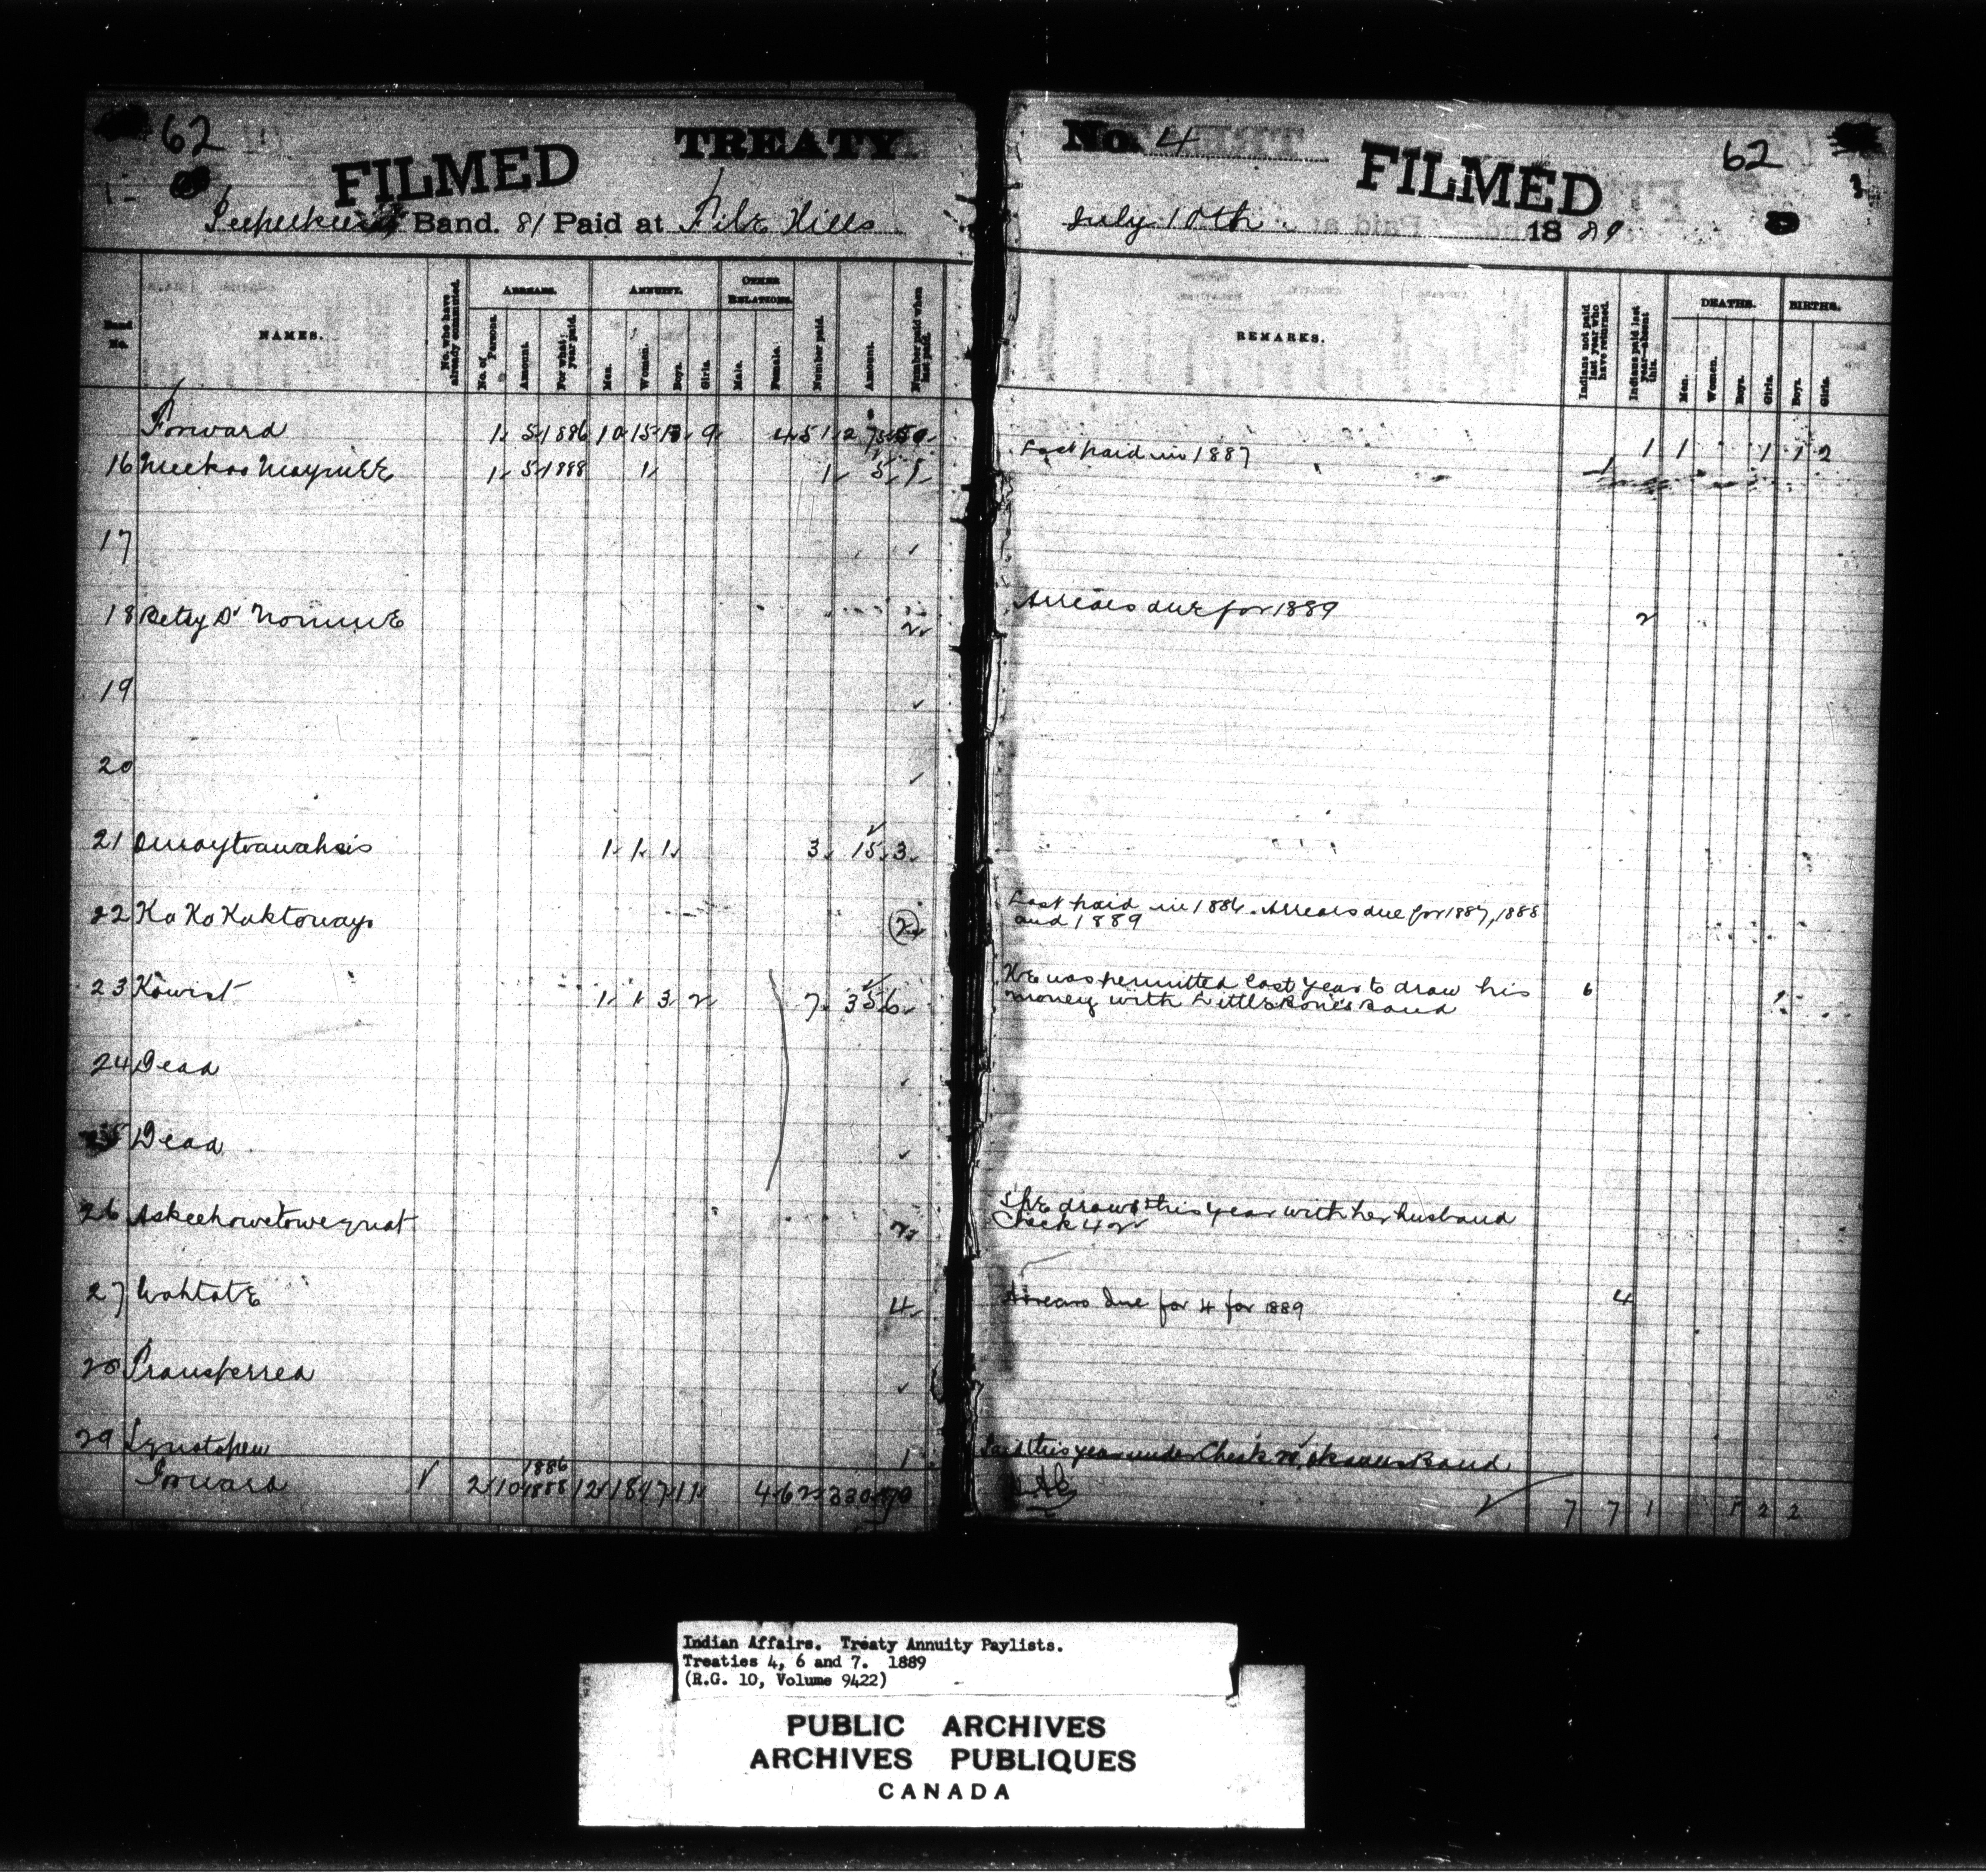 62
FILMED
TREATY
Band. 81 Paid at File Hills
Band No.
NAMES.
No. who have already commuted.
ARREARS.
No. of Persons.
Amount.
For what year paid.
ANNUITY.
Men.
Women.
Boys.
Girls.
OTHER RELATIONS.
Male.
Female.
Number paid.
Amount.
Number paid when last paid.
Forward 1 5 1886 10 15 9 4 51
16 1 5 1888 1 1 5 1
17
18 Betsy 2
19
20
21 1 1 1 3 15 3
22 Ka Ka Kaktoways 2
23 Kowist 1 1 3 2 7 35 6
24 Dead
Dead
26 Askeehowetowequat
27 Wahtate 4
28 Transferred
29 1
1886
Forward 2 10 1888 12 18 17 11 4 62 330
No. 4
FILMED
62
July 10th 1889
REMARKS.
Indians not paid last year who have returned.
Indians paid last year—absent this.
DEATHS.
Men.
Women.
Boys.
Girls.
BIRTHS.
Boys.
Girls.
Last paid in 1887 1 1 1 1 2
Arrears due for 1889 2
Last paid in 1886. Arrears due for 1887, 1888
and 1889
He was permitted last year to draw his 6
money with Little Bone's Band
She draws this year with her husband
Check 42
Arrears due for 4 for 1889 4
Paid this year under Check Band
7 7 1 1 2 2
Indian Affairs. Treaty Annuity Paylists.
Treaties 4, 6 and 7. 1889
(R.G. 10, Volume 9422)
PUBLIC ARCHIVES
ARCHIVES PUBLIQUES
CANADA